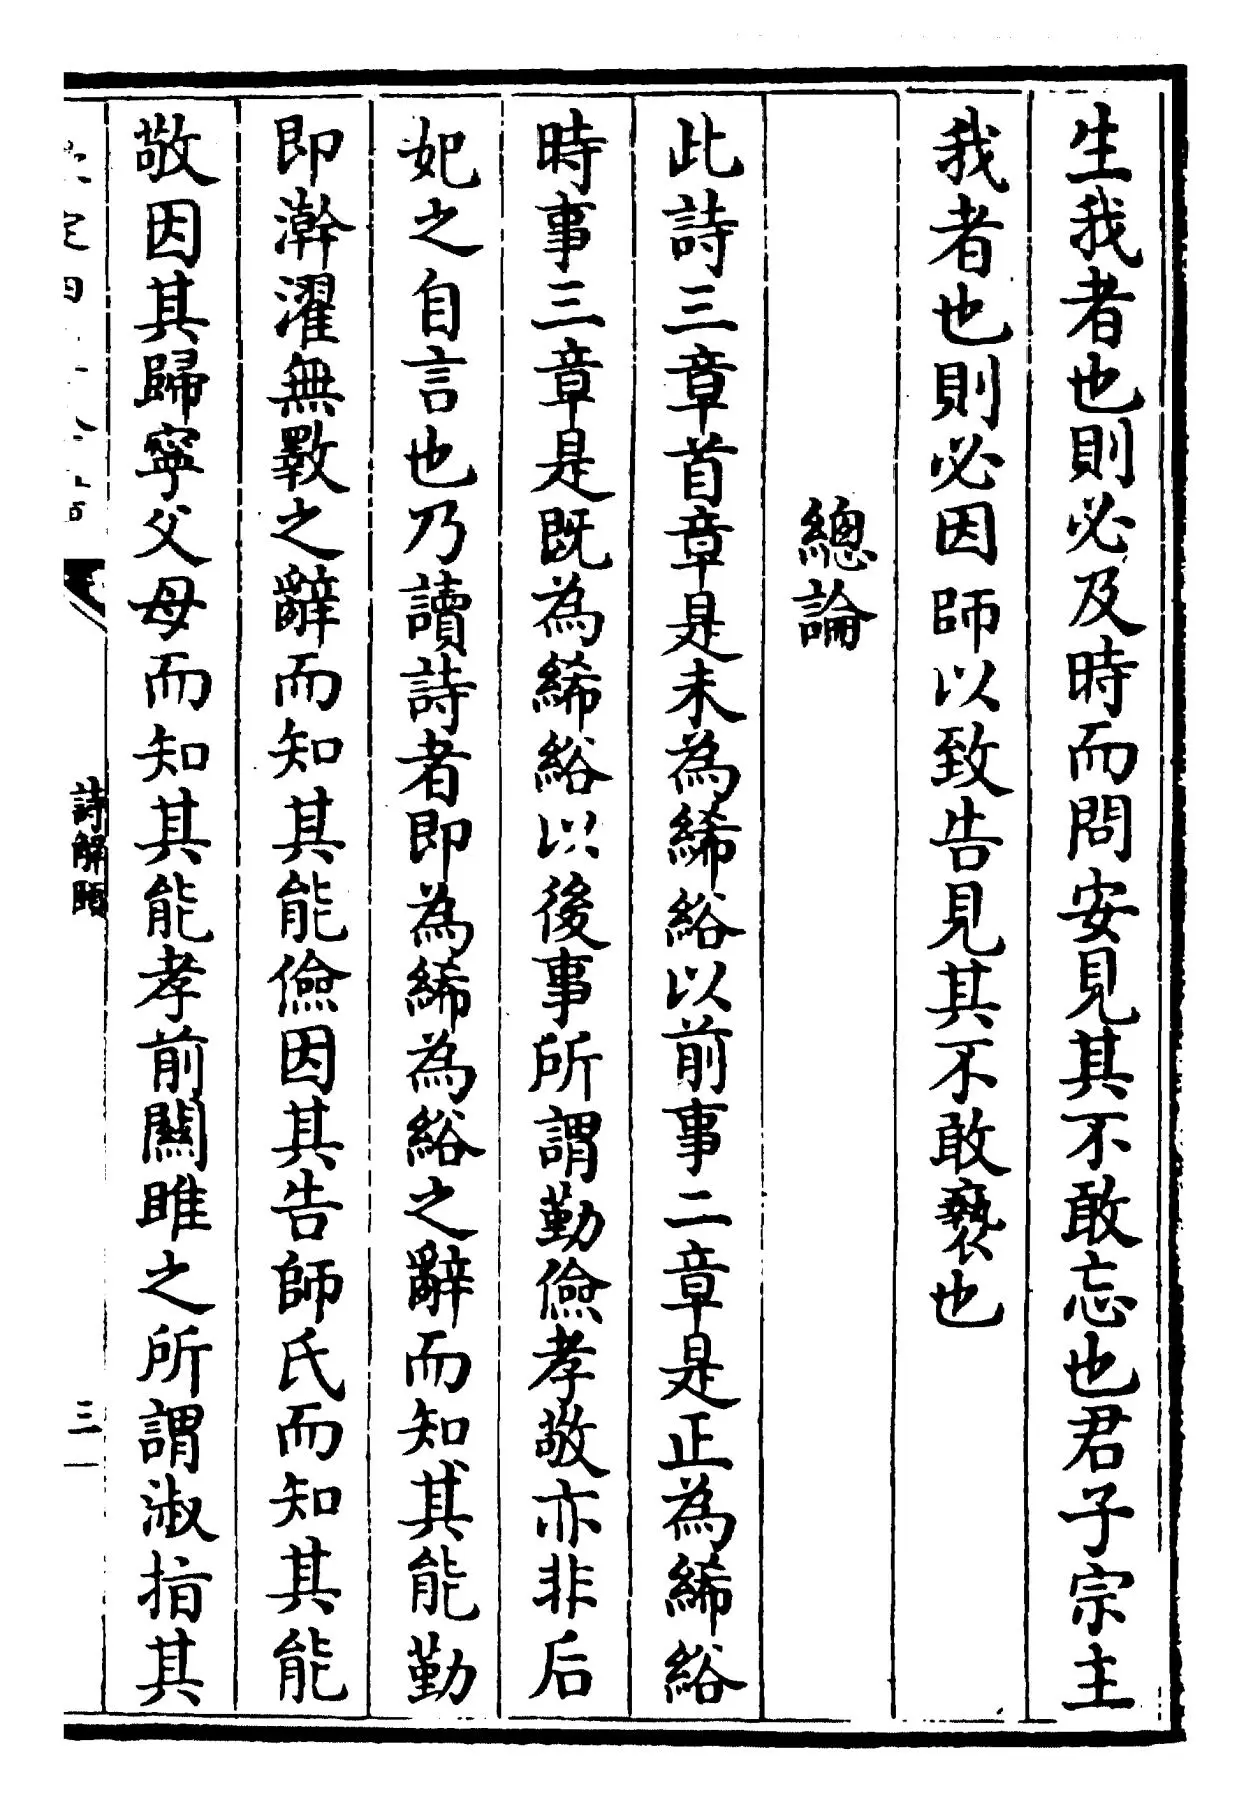 生我者也則必及時而問安見其不敢忘也君子宗主
我者也則必因師以致告見其不敢褻也
總論
此詩三章首章是未為絺綌以前事二章是正為絺綌
時事三章是既為絺綌以後事所謂勤儉孝敬亦非后
妃之自言也乃讀詩者即為絺為綌之辭而知其能勤
即澣濯無斁之辭而知其能儉因其告師氏而知其能
敬因其歸寧父母而知其能孝前關雎之所謂淑指其
詩解頤
三